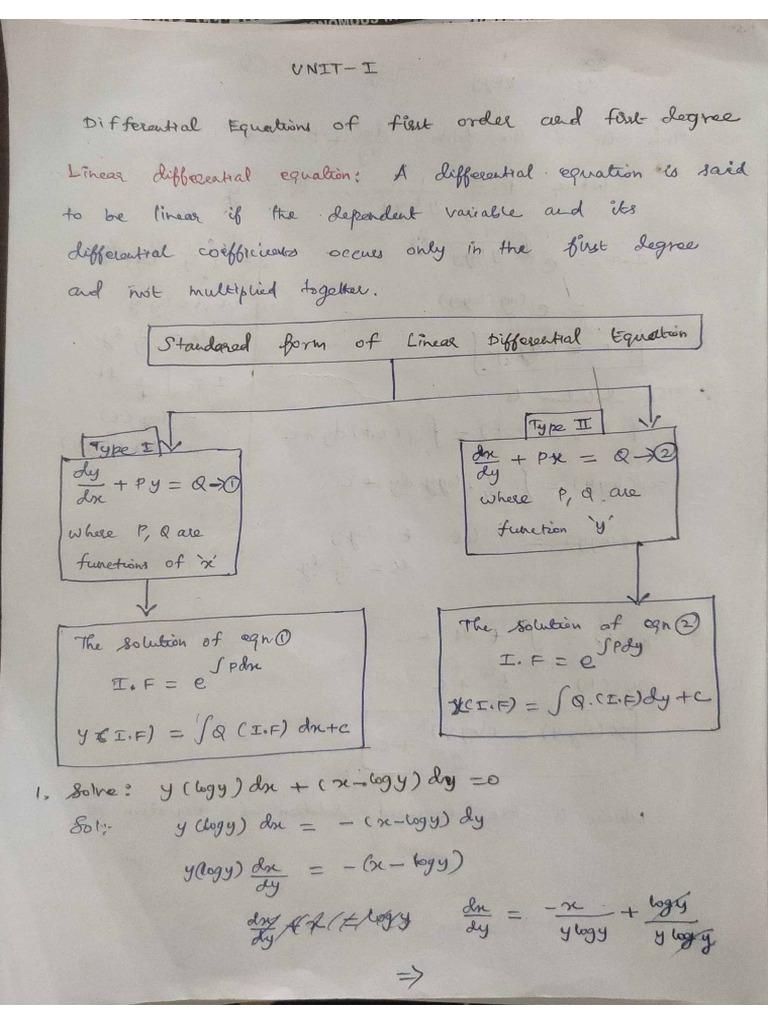 UNIT-I
Differential Equations of first order and first degree
Linear differential equation: A differential equation is said
to be linear if the dependent variable and its
differential coefficients occurs only in the first degree
and not multiplied together.
Standared form of Linear Differential Equation
Type I
dy/dx + Py = Q → ①
where P, Q are
functions of 'x'
The solution of eqn ①
I.F = e^∫Pdx
y (I.F) = ∫Q (I.F) dx+c
Type II
dx/dy + Px = Q → ②
where P, Q are
function 'y'
The solution of eqn ②
I.F = e^∫Pdy
x(I.F) = ∫Q.(I.F)dy+c
1. Solve: y(logy)dx + (x-logy)dy = 0
Sol:- y(logy) dx = -(x-logy) dy
y(logy) dx/dy = -(x-logy)
dx/dy = -x/ylogy + logy/ylogy
⇒